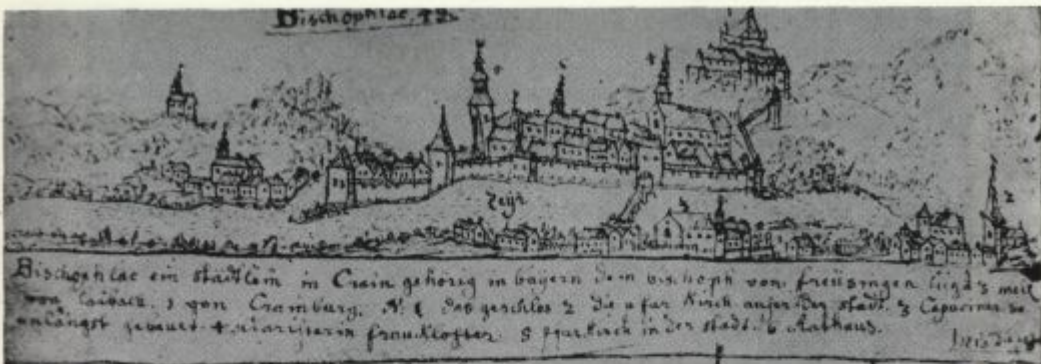 Bischophlac. 42.
Zeÿr
Bischophlac ein stadtlein in Crain gehörig in bayern dem bischoph von freüsingen ligd 3 meil
von laibach. 1 von Crainburg. N. 1 das geschlos 2 die pfar Kirch auser der stadt. 3 Capuciner so
unlängst gebauet. 4 frauKloster. 5 pfarkirch in der stadt. 6 Rathaus.